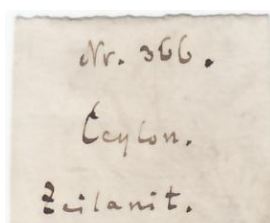 Nr. 366.
Ceylon.
Zeilanit.